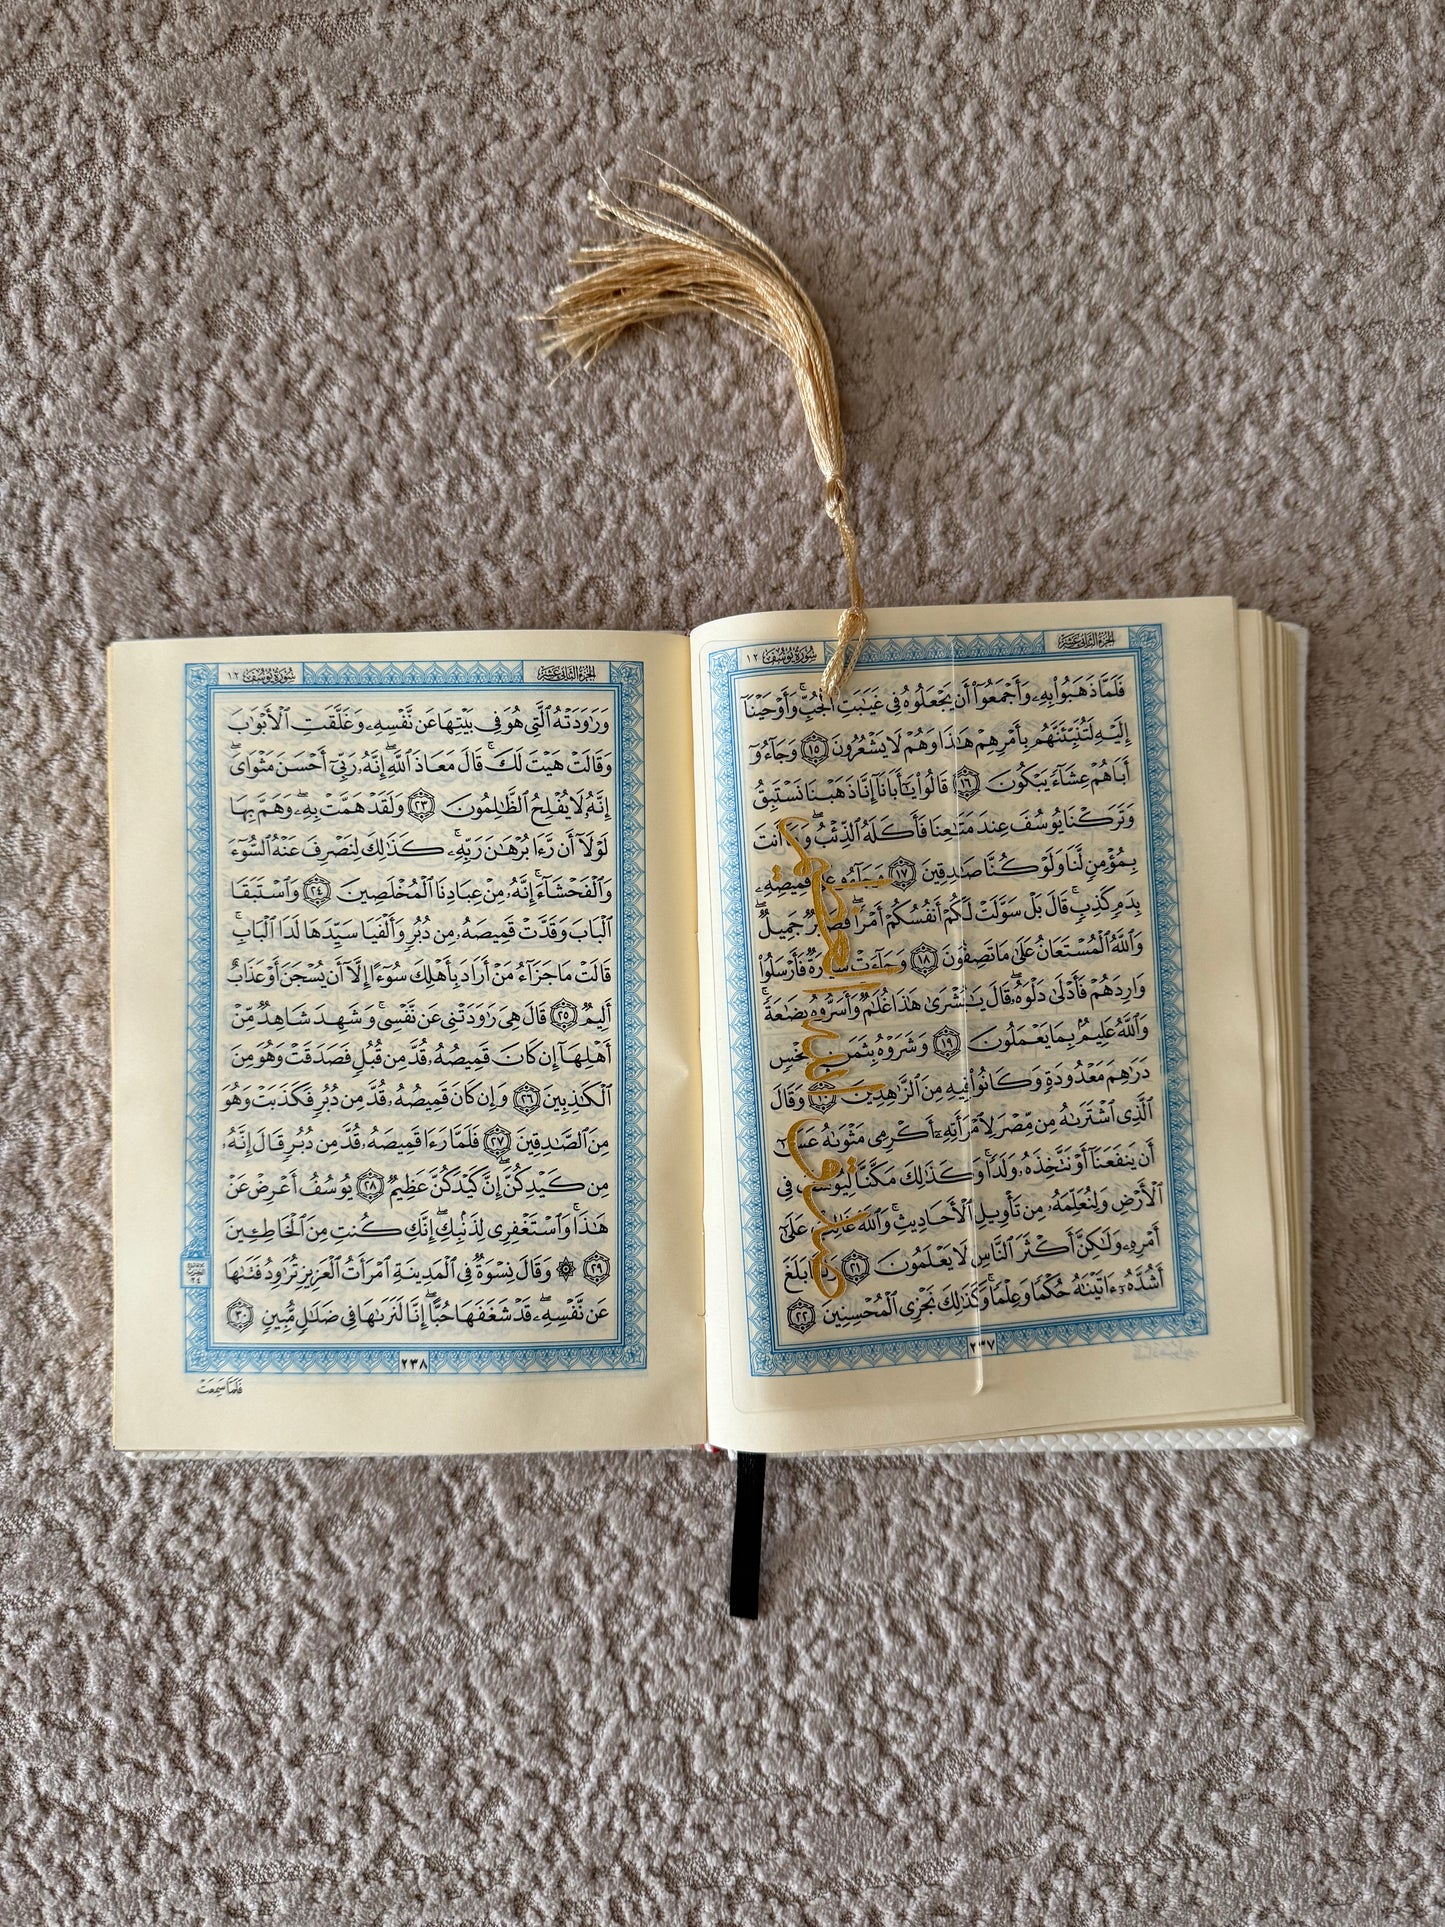 الجزء الثاني عشر
سورة يوسف ١٢
فَلَمَّا ذَهَبُوا۟ بِهِۦ وَأَجْمَعُوٓا۟ أَن يَجْعَلُوهُ فِى غَيَـٰبَتِ ٱلْجُبِّ ۚ وَأَوْحَيْنَآ
إِلَيْهِ لَتُنَبِّئَنَّهُم بِأَمْرِهِمْ هَـٰذَا وَهُمْ لَا يَشْعُرُونَ ١٥ وَجَآءُوٓ
أَبَاهُمْ عِشَآءً يَبْكُونَ ١٦ قَالُوا۟ يَـٰٓأَبَانَآ إِنَّا ذَهَبْنَا نَسْتَبِقُ
وَتَرَكْنَا يُوسُفَ عِندَ مَتَـٰعِنَا فَأَكَلَهُ ٱلذِّئْبُ ۖ وَمَآ أَنتَ
بِمُؤْمِنٍ لَّنَا وَلَوْ كُنَّا صَـٰدِقِينَ ١٧ وَجَآءُو عَلَىٰ قَمِيصِهِۦ
بِدَمٍ كَذِبٍ ۚ قَالَ بَلْ سَوَّلَتْ لَكُمْ أَنفُسُكُمْ أَمْرًا ۖ فَصَبْرٌ جَمِيلٌ ۖ
وَٱللَّهُ ٱلْمُسْتَعَانُ عَلَىٰ مَا تَصِفُونَ ١٨ وَجَآءَتْ سَيَّارَةٌ فَأَرْسَلُوا۟
وَارِدَهُمْ فَأَدْلَىٰ دَلْوَهُۥ ۖ قَالَ يَـٰبُشْرَىٰ هَـٰذَا غُلَـٰمٌ ۚ وَأَسَرُّوهُ بِضَـٰعَةً ۚ
وَٱللَّهُ عَلِيمٌۢ بِمَا يَعْمَلُونَ ١٩ وَشَرَوْهُ بِثَمَنٍۭ بَخْسٍ
دَرَٰهِمَ مَعْدُودَةٍ وَكَانُوا۟ فِيهِ مِنَ ٱلزَّٰهِدِينَ ٢٠ وَقَالَ
ٱلَّذِى ٱشْتَرَىٰهُ مِن مِّصْرَ لِٱمْرَأَتِهِۦٓ أَكْرِمِى مَثْوَىٰهُ عَسَىٰٓ
أَن يَنفَعَنَآ أَوْ نَتَّخِذَهُۥ وَلَدًا ۚ وَكَذَٰلِكَ مَكَّنَّا لِيُوسُفَ فِى
ٱلْأَرْضِ وَلِنُعَلِّمَهُۥ مِن تَأْوِيلِ ٱلْأَحَادِيثِ ۚ وَٱللَّهُ غَالِبٌ عَلَىٰٓ
أَمْرِهِۦ وَلَـٰكِنَّ أَكْثَرَ ٱلنَّاسِ لَا يَعْلَمُونَ ٢١ وَلَمَّا بَلَغَ
أَشُدَّهُۥٓ ءَاتَيْنَـٰهُ حُكْمًا وَعِلْمًا ۚ وَكَذَٰلِكَ نَجْزِى ٱلْمُحْسِنِينَ ٢٢
٢٣٧
صدق الله العظيم
الجزء الثاني عشر
سورة يوسف ١٢
وَرَٰوَدَتْهُ ٱلَّتِى هُوَ فِى بَيْتِهَا عَن نَّفْسِهِۦ وَغَلَّقَتِ ٱلْأَبْوَٰبَ
وَقَالَتْ هَيْتَ لَكَ ۚ قَالَ مَعَاذَ ٱللَّهِ ۖ إِنَّهُۥ رَبِّىٓ أَحْسَنَ مَثْوَاىَ ۖ
إِنَّهُۥ لَا يُفْلِحُ ٱلظَّـٰلِمُونَ ٢٣ وَلَقَدْ هَمَّتْ بِهِۦ ۖ وَهَمَّ بِهَا
لَوْلَآ أَن رَّءَا بُرْهَـٰنَ رَبِّهِۦ ۚ كَذَٰلِكَ لِنَصْرِفَ عَنْهُ ٱلسُّوٓءَ
وَٱلْفَحْشَآءَ ۚ إِنَّهُۥ مِنْ عِبَادِنَا ٱلْمُخْلَصِينَ ٢٤ وَٱسْتَبَقَا
ٱلْبَابَ وَقَدَّتْ قَمِيصَهُۥ مِن دُبُرٍ وَأَلْفَيَا سَيِّدَهَا لَدَا ٱلْبَابِ ۚ
قَالَتْ مَا جَزَآءُ مَنْ أَرَادَ بِأَهْلِكَ سُوٓءًا إِلَّآ أَن يُسْجَنَ أَوْ عَذَابٌ
أَلِيمٌ ٢٥ قَالَ هِىَ رَٰوَدَتْنِى عَن نَّفْسِى ۚ وَشَهِدَ شَاهِدٌ مِّنْ
أَهْلِهَآ إِن كَانَ قَمِيصُهُۥ قُدَّ مِن قُبُلٍ فَصَدَقَتْ وَهُوَ مِنَ
ٱلْكَـٰذِبِينَ ٢٦ وَإِن كَانَ قَمِيصُهُۥ قُدَّ مِن دُبُرٍ فَكَذَبَتْ وَهُوَ
مِنَ ٱلصَّـٰدِقِينَ ٢٧ فَلَمَّا رَءَا قَمِيصَهُۥ قُدَّ مِن دُبُرٍ قَالَ إِنَّهُۥ
مِن كَيْدِكُنَّ ۖ إِنَّ كَيْدَكُنَّ عَظِيمٌ ٢٨ يُوسُفُ أَعْرِضْ عَنْ
هَـٰذَا ۚ وَٱسْتَغْفِرِى لِذَنۢبِكِ ۖ إِنَّكِ كُنتِ مِنَ ٱلْخَاطِـِٔينَ
٢٩ ۞ وَقَالَ نِسْوَةٌ فِى ٱلْمَدِينَةِ ٱمْرَأَتُ ٱلْعَزِيزِ تُرَٰوِدُ فَتَىٰهَا
عَن نَّفْسِهِۦ ۖ قَدْ شَغَفَهَا حُبًّا ۖ إِنَّا لَنَرَىٰهَا فِى ضَلَـٰلٍ مُّبِينٍ ٣٠
٢٣٨
فلما سمعت